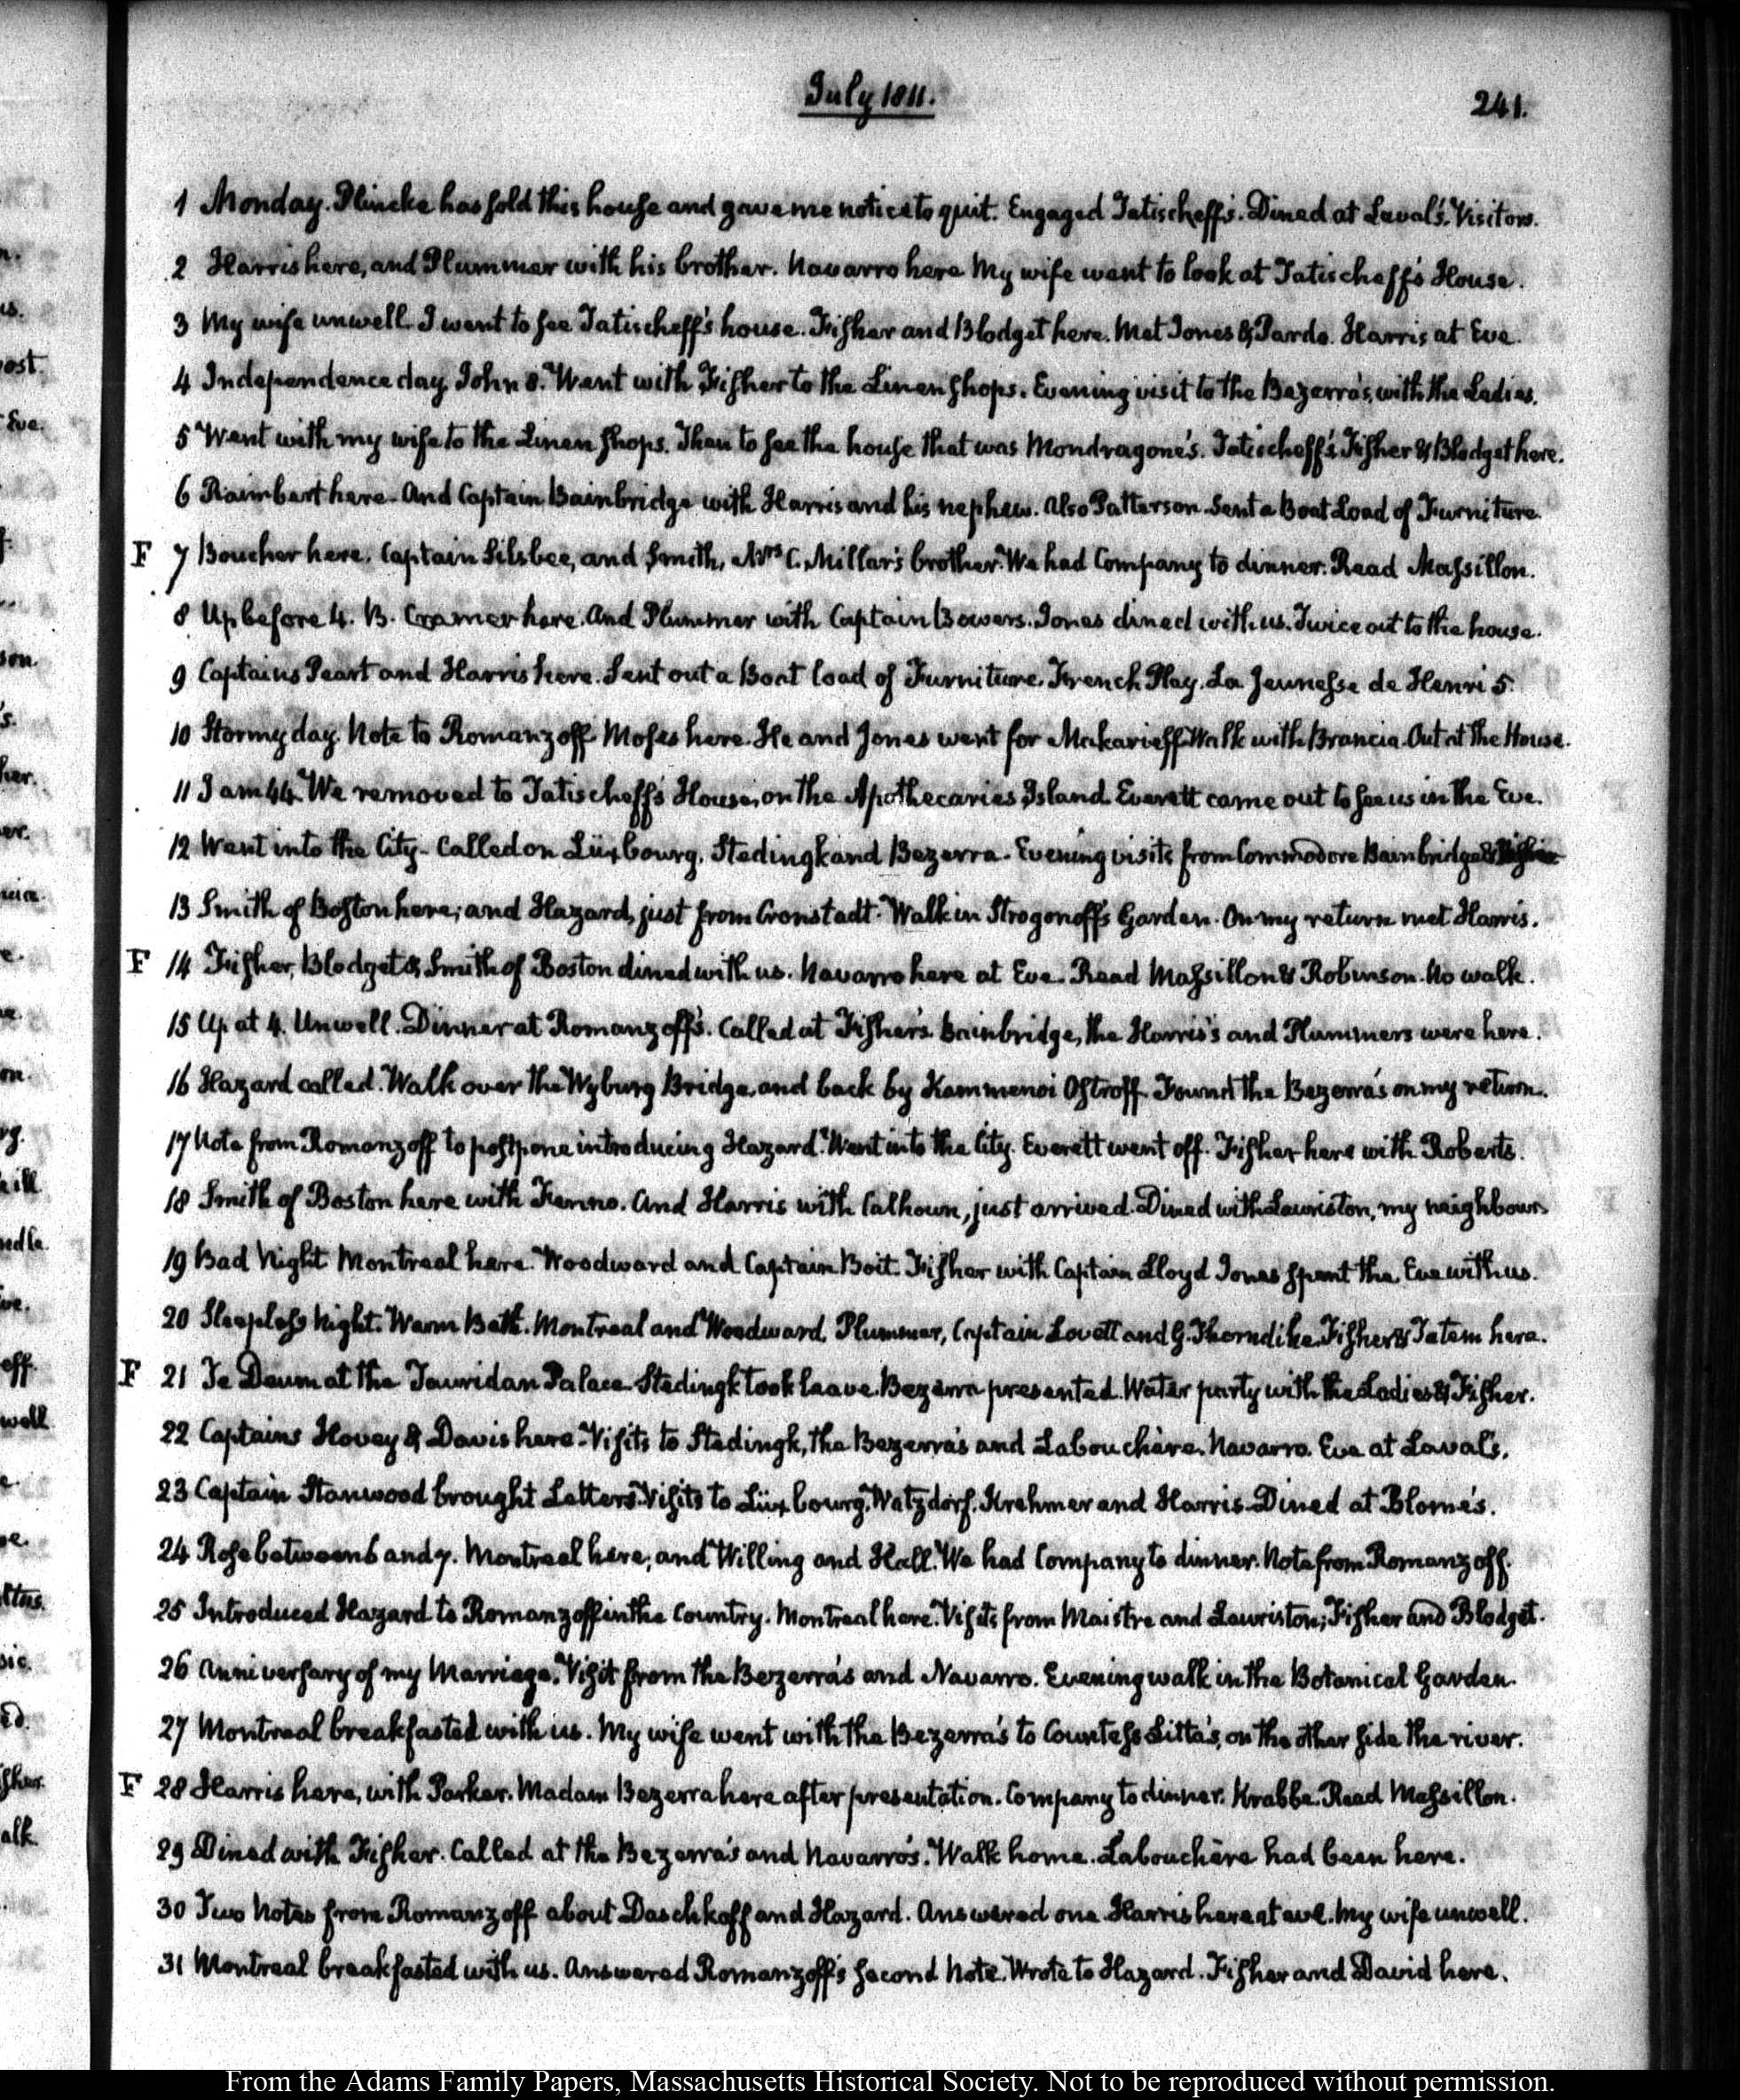 July 1811.
241.
1 Monday. Plincke has sold this house and gave me notice to quit. Engaged Tatischeff's. Dined at Laval's. Visitors.
2 Harris here, and Plummer with his brother. Navarro here My wife went to look at Tatischeff's House.
3 My wife unwell. I went to see Tatischeff's house. Fisher and Blodget here. Met Jones & Pardo. Harris at Eve.
4 Independence day. John 8. Went with Fisher to the Linen shops. Evening visit to the Bezerra's, with the Ladies.
5 Went with my wife to the Linen shops. Then to see the house that was Mondragone's. Tatischeff's. Fisher & Blodget here.
6 Raimbert here. And Captain Bainbridge with Harris and his nephew. Also Patterson. Sent a Boat Load of Furniture.
F 7 Boucher here. Captain Silsbee, and Smith, Mrs C. Millar's brother. We had Company to dinner. Read Massillon.
8 Up before 4. B. Cramer here. And Plummer with Captain Bowers. Jones dined with us. Twice out to the house.
9 Captains Peart and Harris here. Sent out a Boat load of Furniture. French Play. La Jeunesse de Henri 5.
10 Stormy day. Note to Romanzoff. Moses here. He and Jones went for Makarieff. Walk with Brancia. Out at the House.
11 I am 44. We removed to Tatischeff's House, on the Apothecaries Island. Everett came out to see us in the Eve.
12 Went into the City. Called on Lüxbourg, Stedingk and Bezerra. Evening visits from Commodore Bainbridge
13 Smith of Boston here; and Hazard, just from Cronstadt. Walk in Strogonoff's Garden. On my return met Harris.
F 14 Fisher, Blodget & Smith of Boston dined with us. Navarro here at Eve. Read Massillon & Robinson. No walk.
15 Up at 4. Unwell. Dinner at Romanzoff's. Called at Fisher's. Bainbridge, the Harris's and Plummers were here.
16 Hazard called. Walk over the Wyburg Bridge, and back by Kammenoi Ostroff. Found the Bezerra's on my return.
17 Note from Romanzoff to postpone introducing Hazard. Went into the City. Everett went off. Fisher here with Roberts.
18 Smith of Boston here with Fenno. And Harris with Calhoun, just arrived. Dined with Lauriston, my neighbour.
19 Bad Night Montreal here. Woodward and Captain Boit. Fisher with Captain Lloyd Jones spent the Eve with us.
20 Sleepless Night. Warm Bath. Montreal and Woodward, Plummer, Captain Lovett and G. Thorndike. Fisher & Tatem here.
F 21 Te Deum at the Tauridan Palace. Stedingk took leave. Bezerra presented. Water party with the Ladies & Fisher.
22 Captains Hovey & Davis here. Visits to Stedingk, the Bezerra's and Labouchère. Navarro. Eve at Laval's.
23 Captain Stanwood brought Letters. Visits to Lüxbourg, Watzdorf, Krehmer and Harris. Dined at Blome's.
24 Rose between 6 and 7. Montreal here; and Willing and Hall. We had Company to dinner. Note from Romanzoff.
25 Introduced Hazard to Romanzoff in the Country. Montreal here. Visits from Maistre and Lauriston; Fisher and Blodget.
26 Anniversary of my Marriage. Visit from the Bezerra's and Navarro. Evening walk in the Botanical Garden.
27 Montreal breakfasted with us. My wife went with the Bezerra's to Countess Litta's, on the other side the river.
F 28 Harris here, with Parker. Madam Bezerra here after presentation. Company to dinner. Krabbe. Read Massillon.
29 Dined with Fisher. Called at the Bezerra's and Navarro's. Walk home. Labouchère had been here.
30 Two Notes from Romanzoff about Daschkoff and Hazard. Answered one. Harris here at eve. My wife unwell.
31 Montreal breakfasted with us. Answered Romanzoff's second Note. Wrote to Hazard. Fisher and David here.
From the Adams Family Papers, Massachusetts Historical Society. Not to be reproduced without permission.